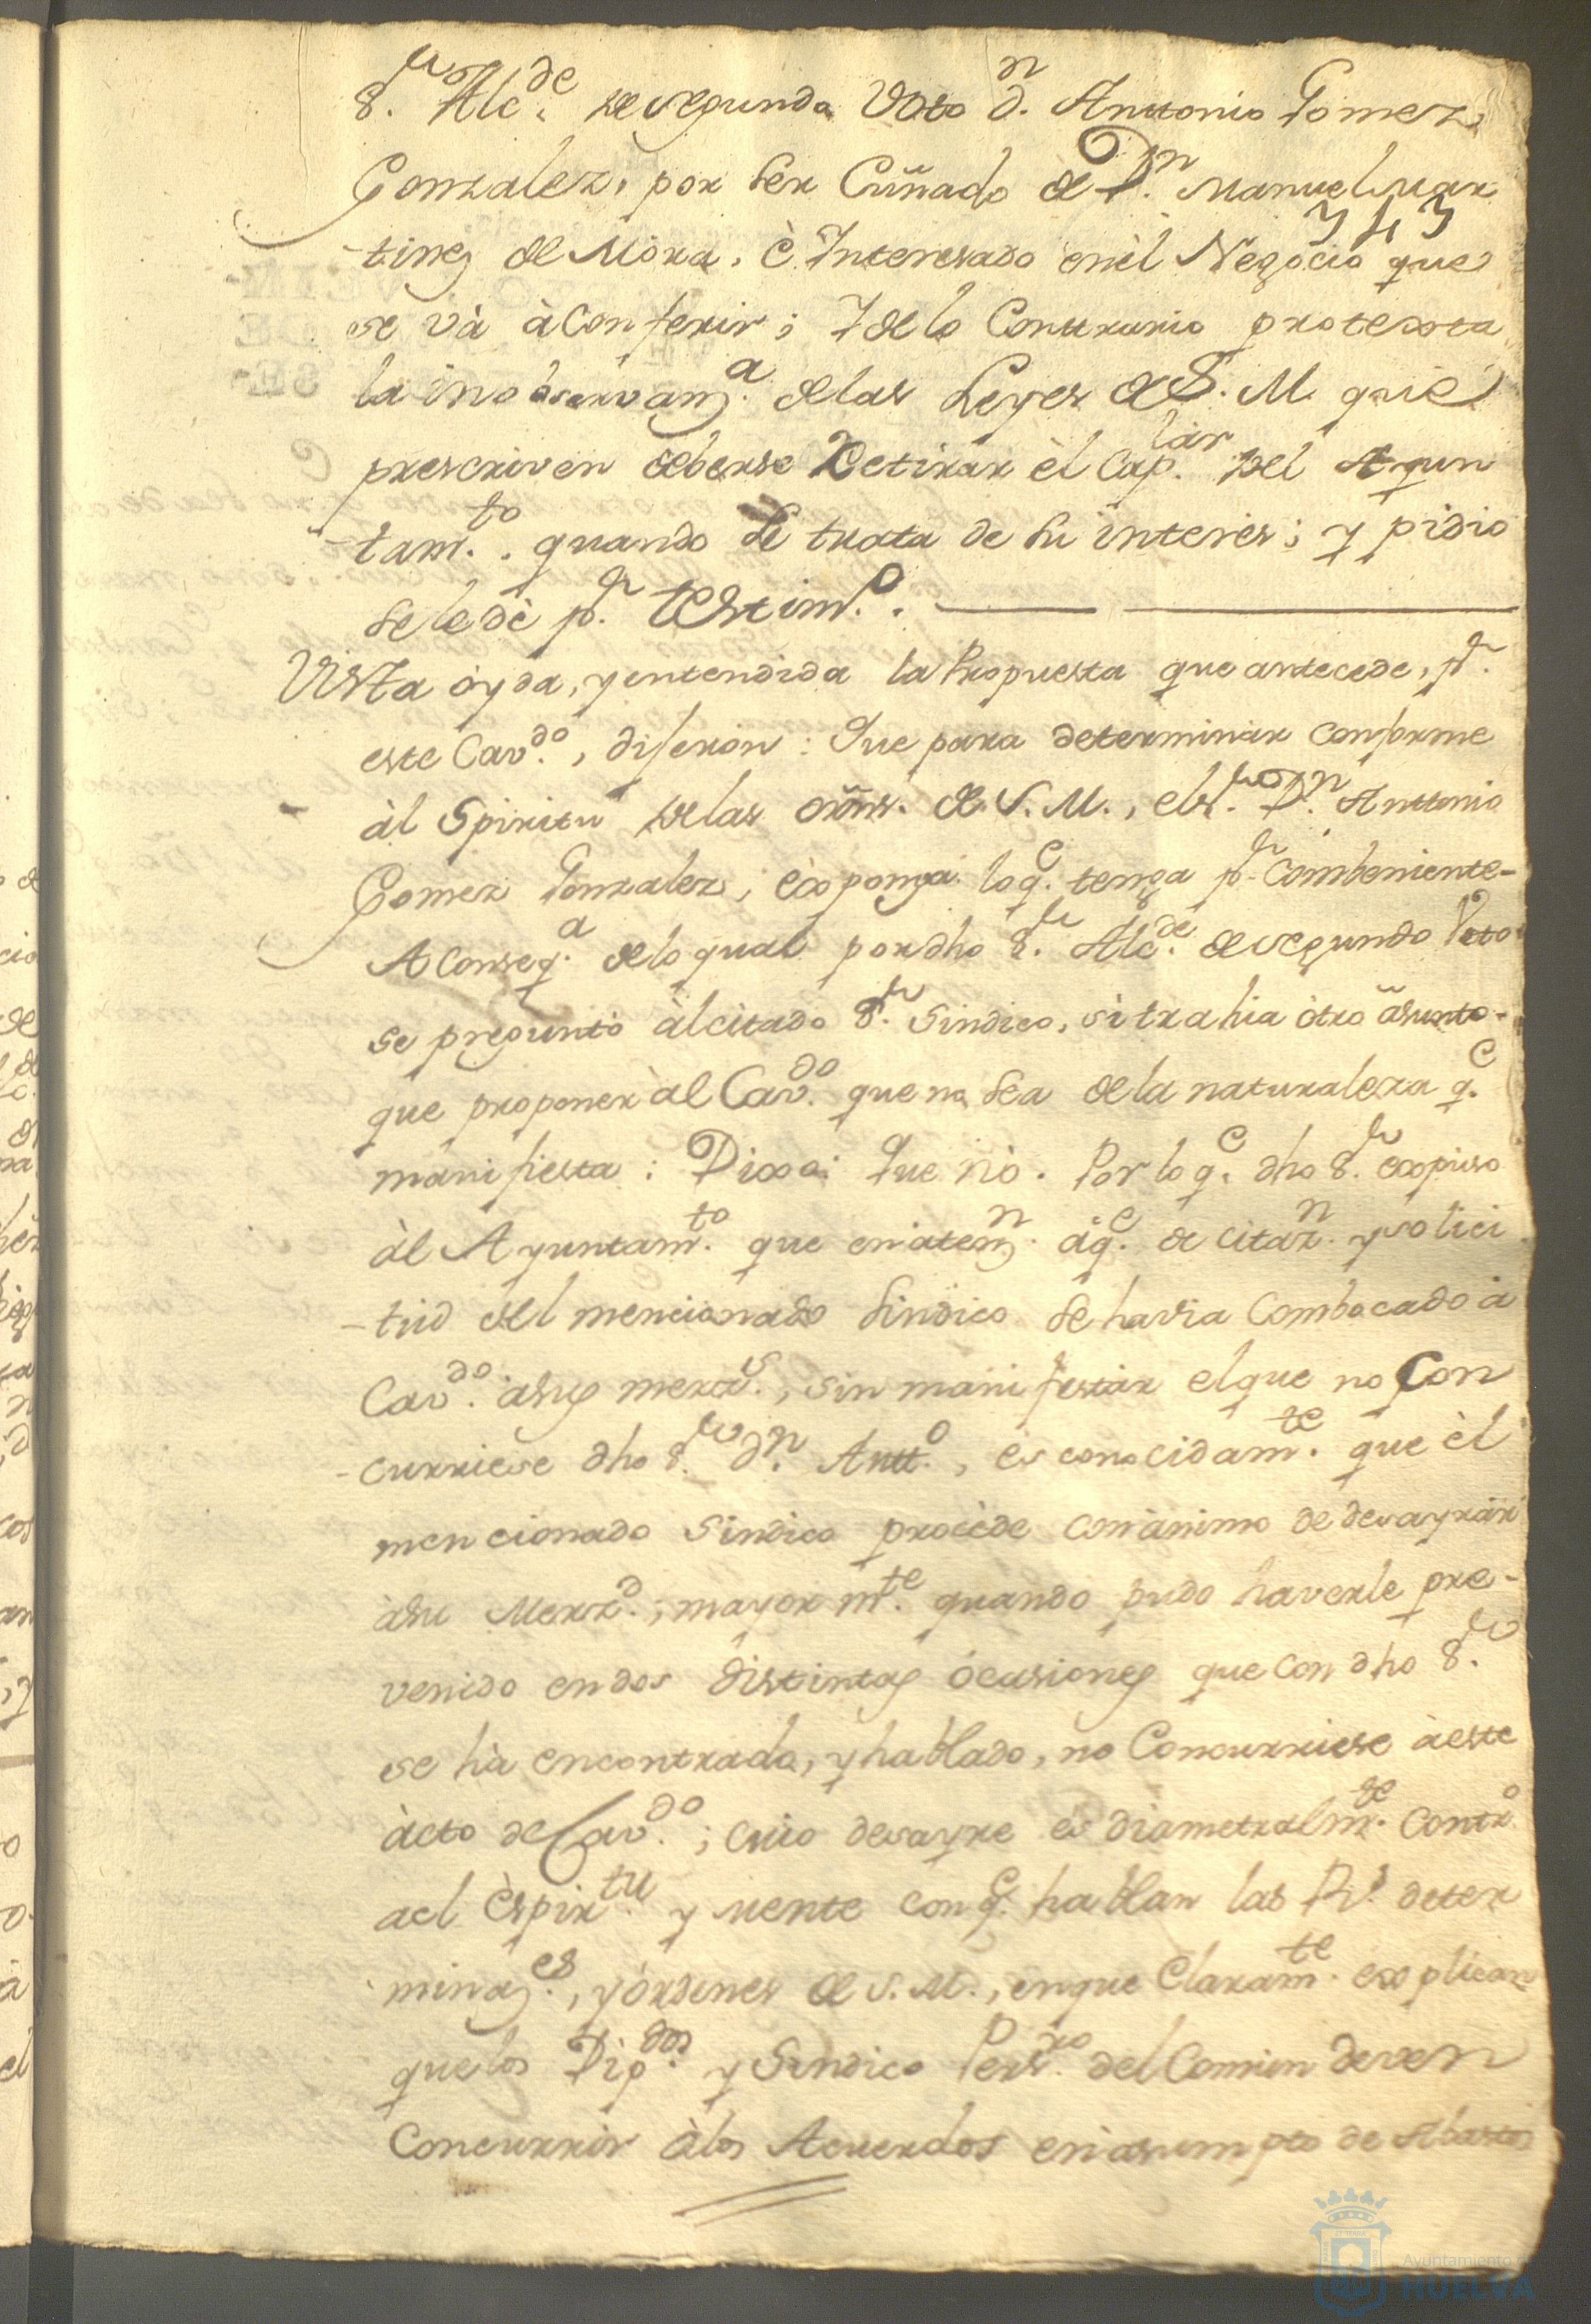 S.r Alc.de de segundo Voto d.n Anttonio Gomez
Gonzalez, por ser Cuñado de D.n Manuel Mar
343
-tines de Mora, è Interesado en èl Negocio que
se và à conferir; Y de lo Conttrario protexta
la inobservanz.a de las Leyes de S. M. que
prescriven deberse Retirar èl Cap.lar del Ayun
-tam.to quando se trata de su interès; y pidio
se le dè p.r testim.o
Vista oyda, y entendida la Propuesta que antecede, p.r
este Cav.do, diferon: Que para determinar conforme
àl Spiritu de las òrñs. de S. M., el s.r D.n Anttonio
Gomez Gonzalez, èxponga lo q.e tenga p.r combeniente-
A conseq.a de lo qual por dho S.r Alc.de de segundo Voto
se preguntò àl citado S.r Sindico, si trahia òtro asunto-
que proponer àl Cav.do que no sea de la naturaleza q.e
manifiesta: Dixo: Que nò. Por lo q.e dho S.r expuso
àl Ayuntam.to que en atenz.n à q.e de citaz.n y solici
-tud del mencionado Sindico se havia Combocado à
Cav.do à sus merz.s, sin manifestar el que no Con
-curriese dho S.r d.n Antt.o, es conocidam.te que èl
mencionado Sindico procède con ànimo de desayrar
à su Merz.d; mayorm.te quando pudo haverle pre-
venido en dos distintas òcasiones que con dho S.r
se hà encontrado, y hablado, no Concurriese à este
àcto de Cav.do; cuio desayre es diametralm.te contr.o
a el Èspir.tu y mente con q.e hablan las R.s deter
minaz.es, y òrdenes de S. M., en que Claram.te explican
que los Dip.dos y Sindico Pers.ro del Comun deven
Concurrir à los Acuerdos en asumpto de Abastos